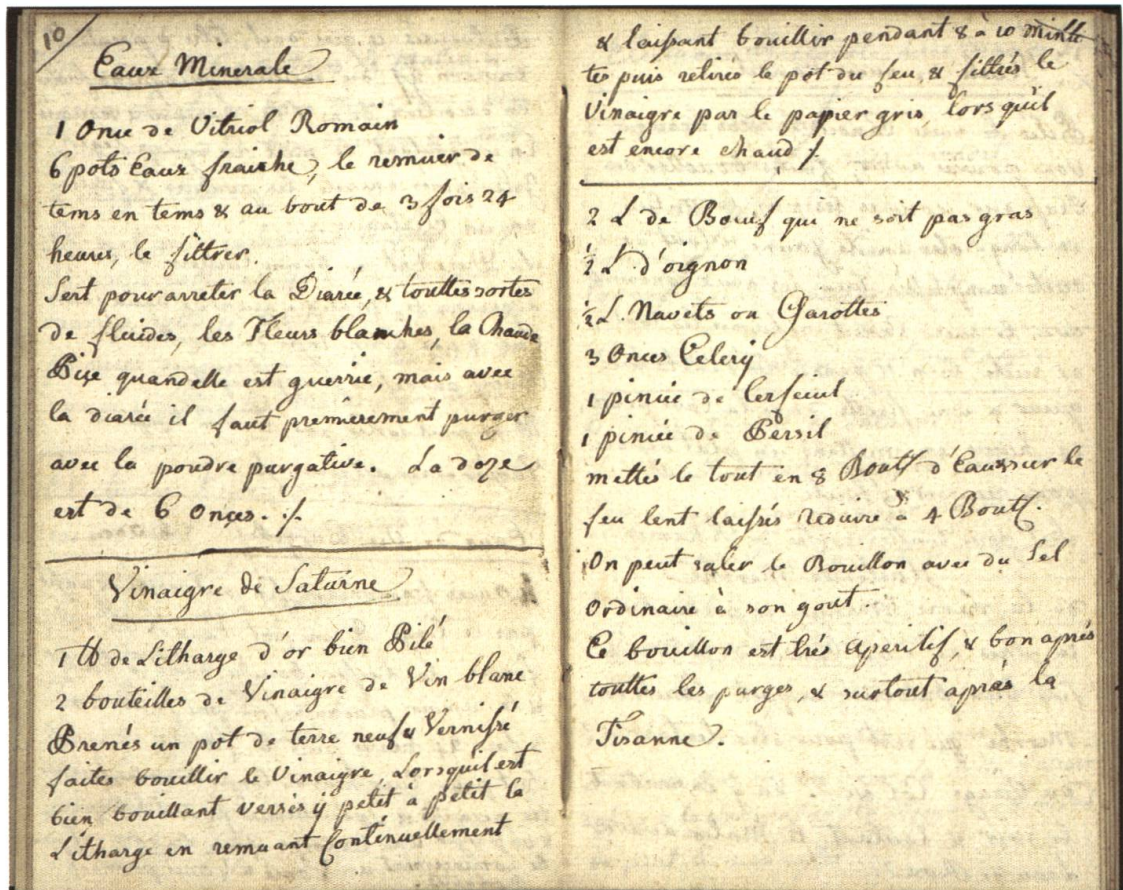 10/
Eaux Minerale
1 Once de Vitriol Romain
6 pots Eaux fraiche, le remuer de
tems en tems & au bout de 3 fois 24
heures, le filtrer.
Sert pour arreter la Diarée, & touttes sortes
de fluides, les Fleurs blanches, la Chaude
Pise quand elle est guerrie, mais avec
la diarée il faut premierement purger
avec la poudre purgative. La doze
est de 6 Onçes. ./.
Vinaigre de Saturne
1 ℔ de Litharge d'or bien Pilé
2 bouteilles de Vinaigre de Vin blanc
Prenés un pot de terre neuf & Vernissé
faites bouillir le Vinaigre, Lorsquil est
bien bouillant versés y petit à petit la
Litharge en remuant Continuellement
& laissant bouillir pendant 8 à 10 minu
tes puis retirés le pot du feu, & filtrés le
Vinaigre par le papier gris, lors qu'il
est encore chaud ./.
2 L de Boeuf qui ne soit pas gras
½ L d'oignon
½ L. Navets ou Carottes
3 Onces Celery
1 pincée de Cerfeuil
1 pincée de Persil
mettés le tout en 8 Boutt d'Eaux sur le
feu lent laissés reduire à 4 Boutt.
On peut saler le Bouillon avec du Sel
Ordinaire à son gout
Ce bouillon est très Aperitif, & bon après
touttes les purges, & surtout après la
Tisanne.